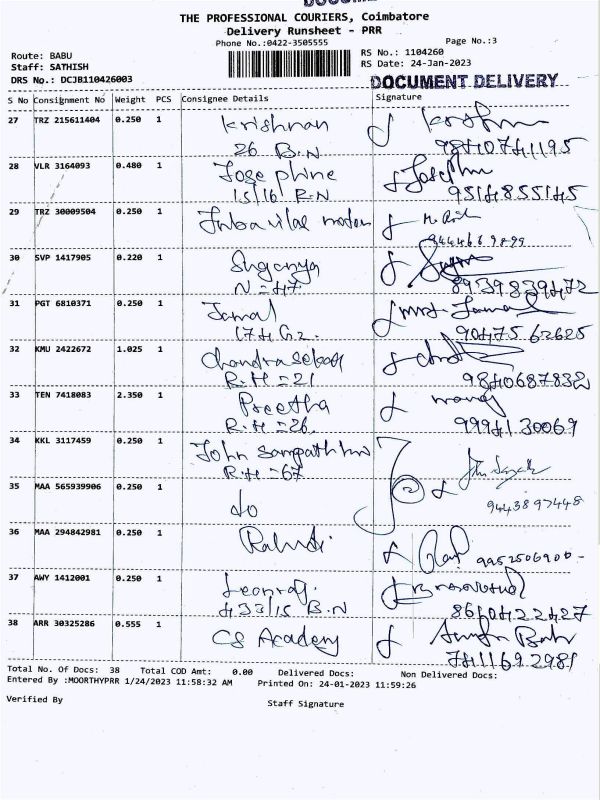 THE PROFESSIONAL COURIERS, Coimbatore
Delivery Runsheet - PRR
Phone No.:0422-3505555
Page No.:3
Route: BABU
Staff: SATHISH
DRS No.: DCJB110426003
RS No.: 1104260
RS Date: 24-Jan-2023
DOCUMENT DELIVERY
S No Consignment No Weight PCS Consignee Details Signature
27 TRZ 215611404 0.250 1 Krishnan
26 B.N
28 VLR 3164093 0.480 1 Josephine Josephine
15/16 R.N 9514855145
29 TRZ 30009504 0.250 1
30 SVP 1417905 0.220 1
N = 47 8939839472
31 PGT 6810371 0.250 1 Jamal
174 G2. 90475 62625
32 KMU 2422672 1.025 1
R.H = 21 9840687832
33 TEN 7418083 2.350 1 Preetha
R.H = 26 9994130069
34 KKL 3117459 0.250 1 John Sampath
R.H = 67
35 MAA 565939906 0.250 1 do
9443897448
36 MAA 294842981 0.250 1
9952506900
37 AWY 1412001 0.250 1
433/15 B.N 8610422427
38 ARR 30325286 0.555 1 CS Academy
7411692981
Total No. Of Docs: 38 Total COD Amt: 0.00 Delivered Docs: Non Delivered Docs:
Entered By :MOORTHYPRR 1/24/2023 11:58:32 AM Printed On: 24-01-2023 11:59:26
Verified By
Staff Signature